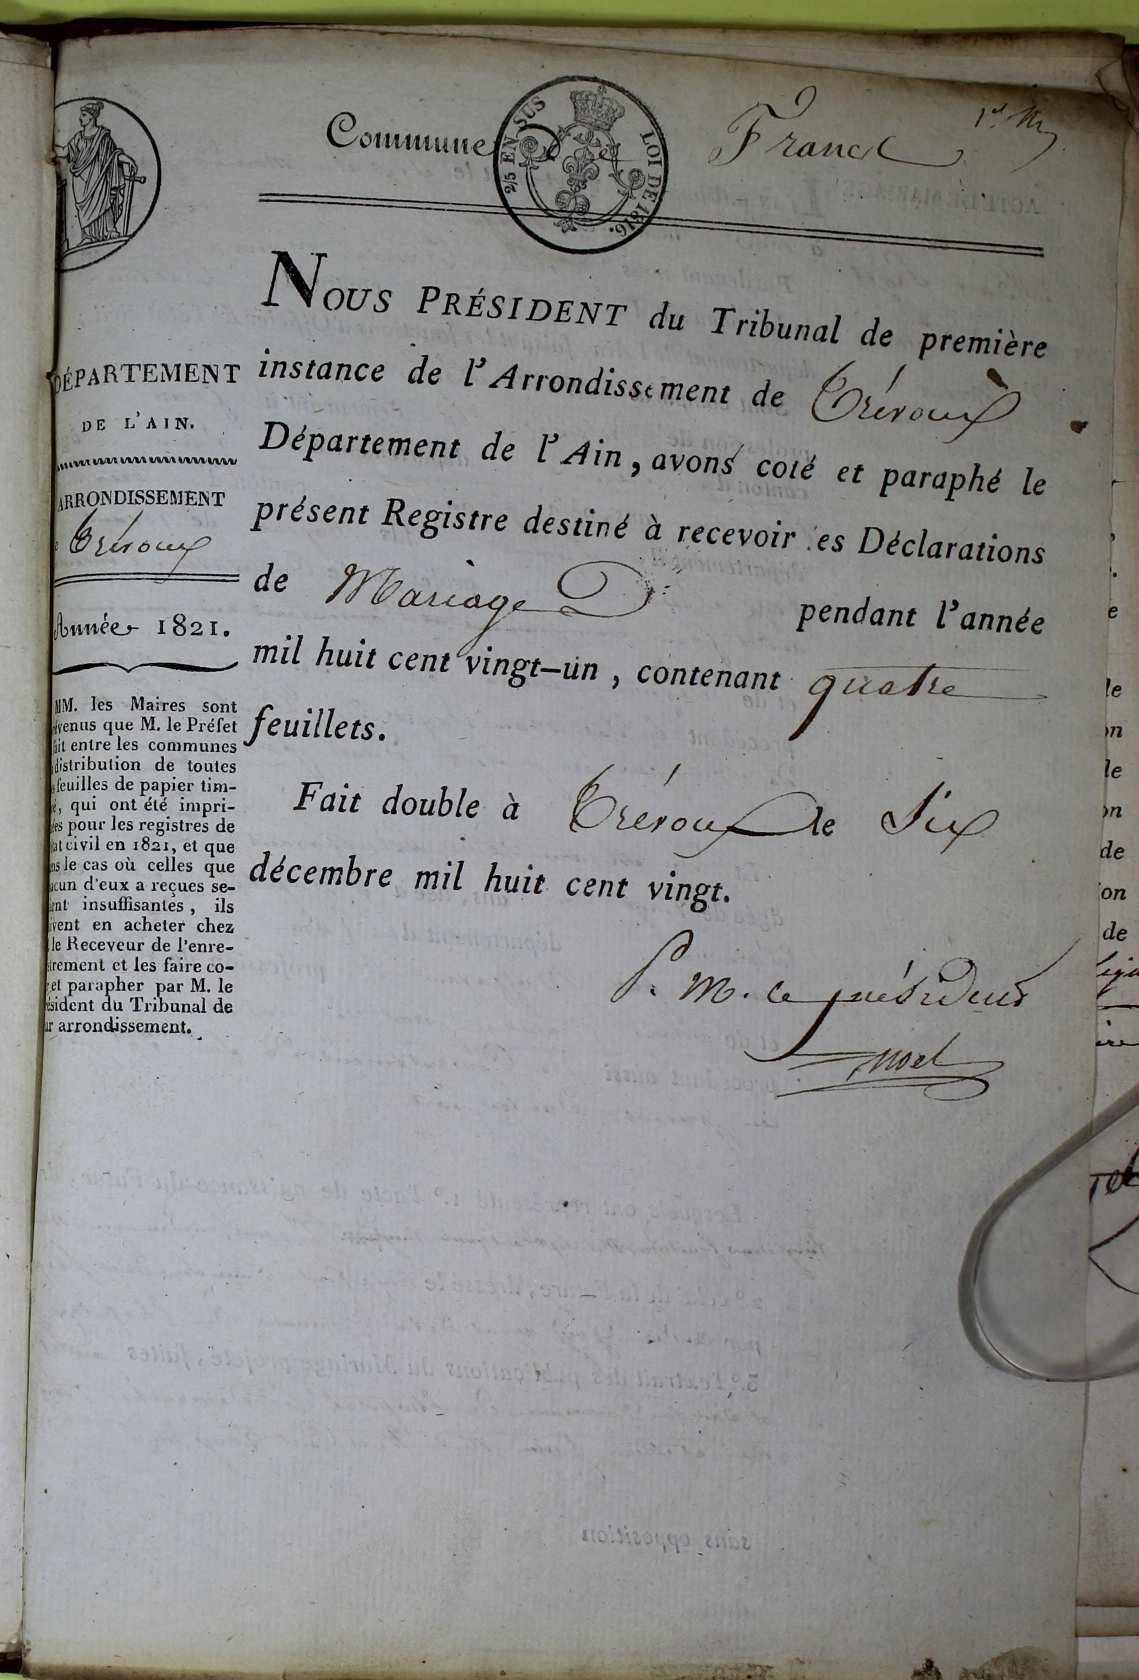 Commune de Francs
2/5 EN SUS
LOI DE 1816.
NOUS PRÉSIDENT du Tribunal de première
instance de l'Arrondissement de Trévoux
Département de l'Ain, avons coté et paraphé le
présent Registre destiné à recevoir les Déclarations
de Mariage pendant l'année
mil huit cent vingt-un, contenant quatre
feuillets.
Fait double à Trévoux le Six
décembre mil huit cent vingt.
P. M. le président
Noel
DÉPARTEMENT
DE L'AIN.
ARRONDISSEMENT
Trévoux
Année 1821.
MM. les Maires sont
évenus que M. le Préfet
ait entre les communes
distribution de toutes
feuilles de papier tim-
é, qui ont été impri-
ées pour les registres de
at civil en 1821, et que
ns le cas où celles que
acun d'eux a reçues se-
ent insuffisantes, ils
ivent en acheter chez
le Receveur de l'enre-
strement et les faire co-
et parapher par M. le
ésident du Tribunal de
ur arrondissement.